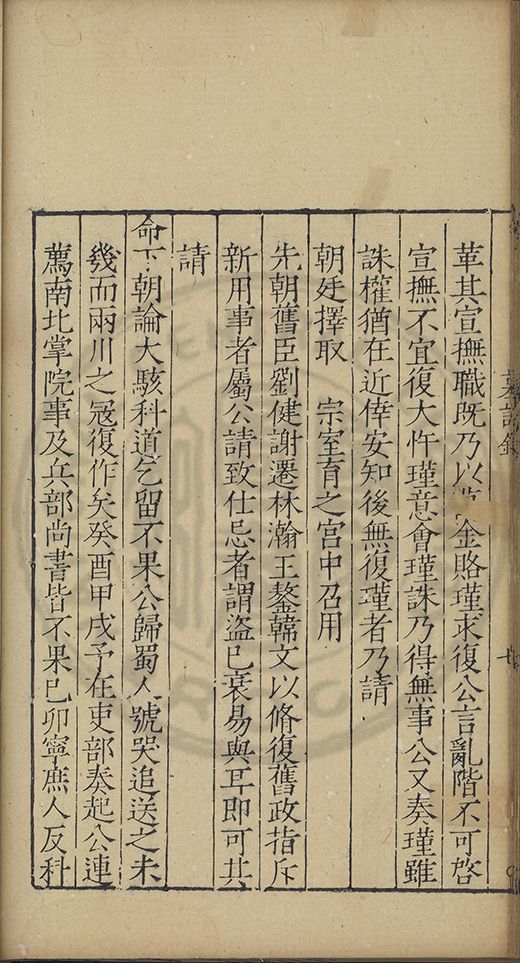 革其宣撫職既乃以金賂瑾求復公言亂階不可啓
宣撫不宜復大忤瑾意會瑾誅乃得無事公又奏瑾雖
誅權猶在近倖安知後無復瑾者乃請
朝廷擇取　宗室育之宮中召用
先朝舊臣劉健謝遷林瀚王鏊韓文以脩復舊政指斥
新用事者屬公請致仕忌者謂盜已衰易與耳即可其
請
命下朝論大駭科道乞留不果公歸蜀人號哭追送之未
幾而兩川之冦復作矣癸酉甲戌予在吏部奏起公連
薦南北掌院事及兵部尚書皆不果已卯寧庶人反科